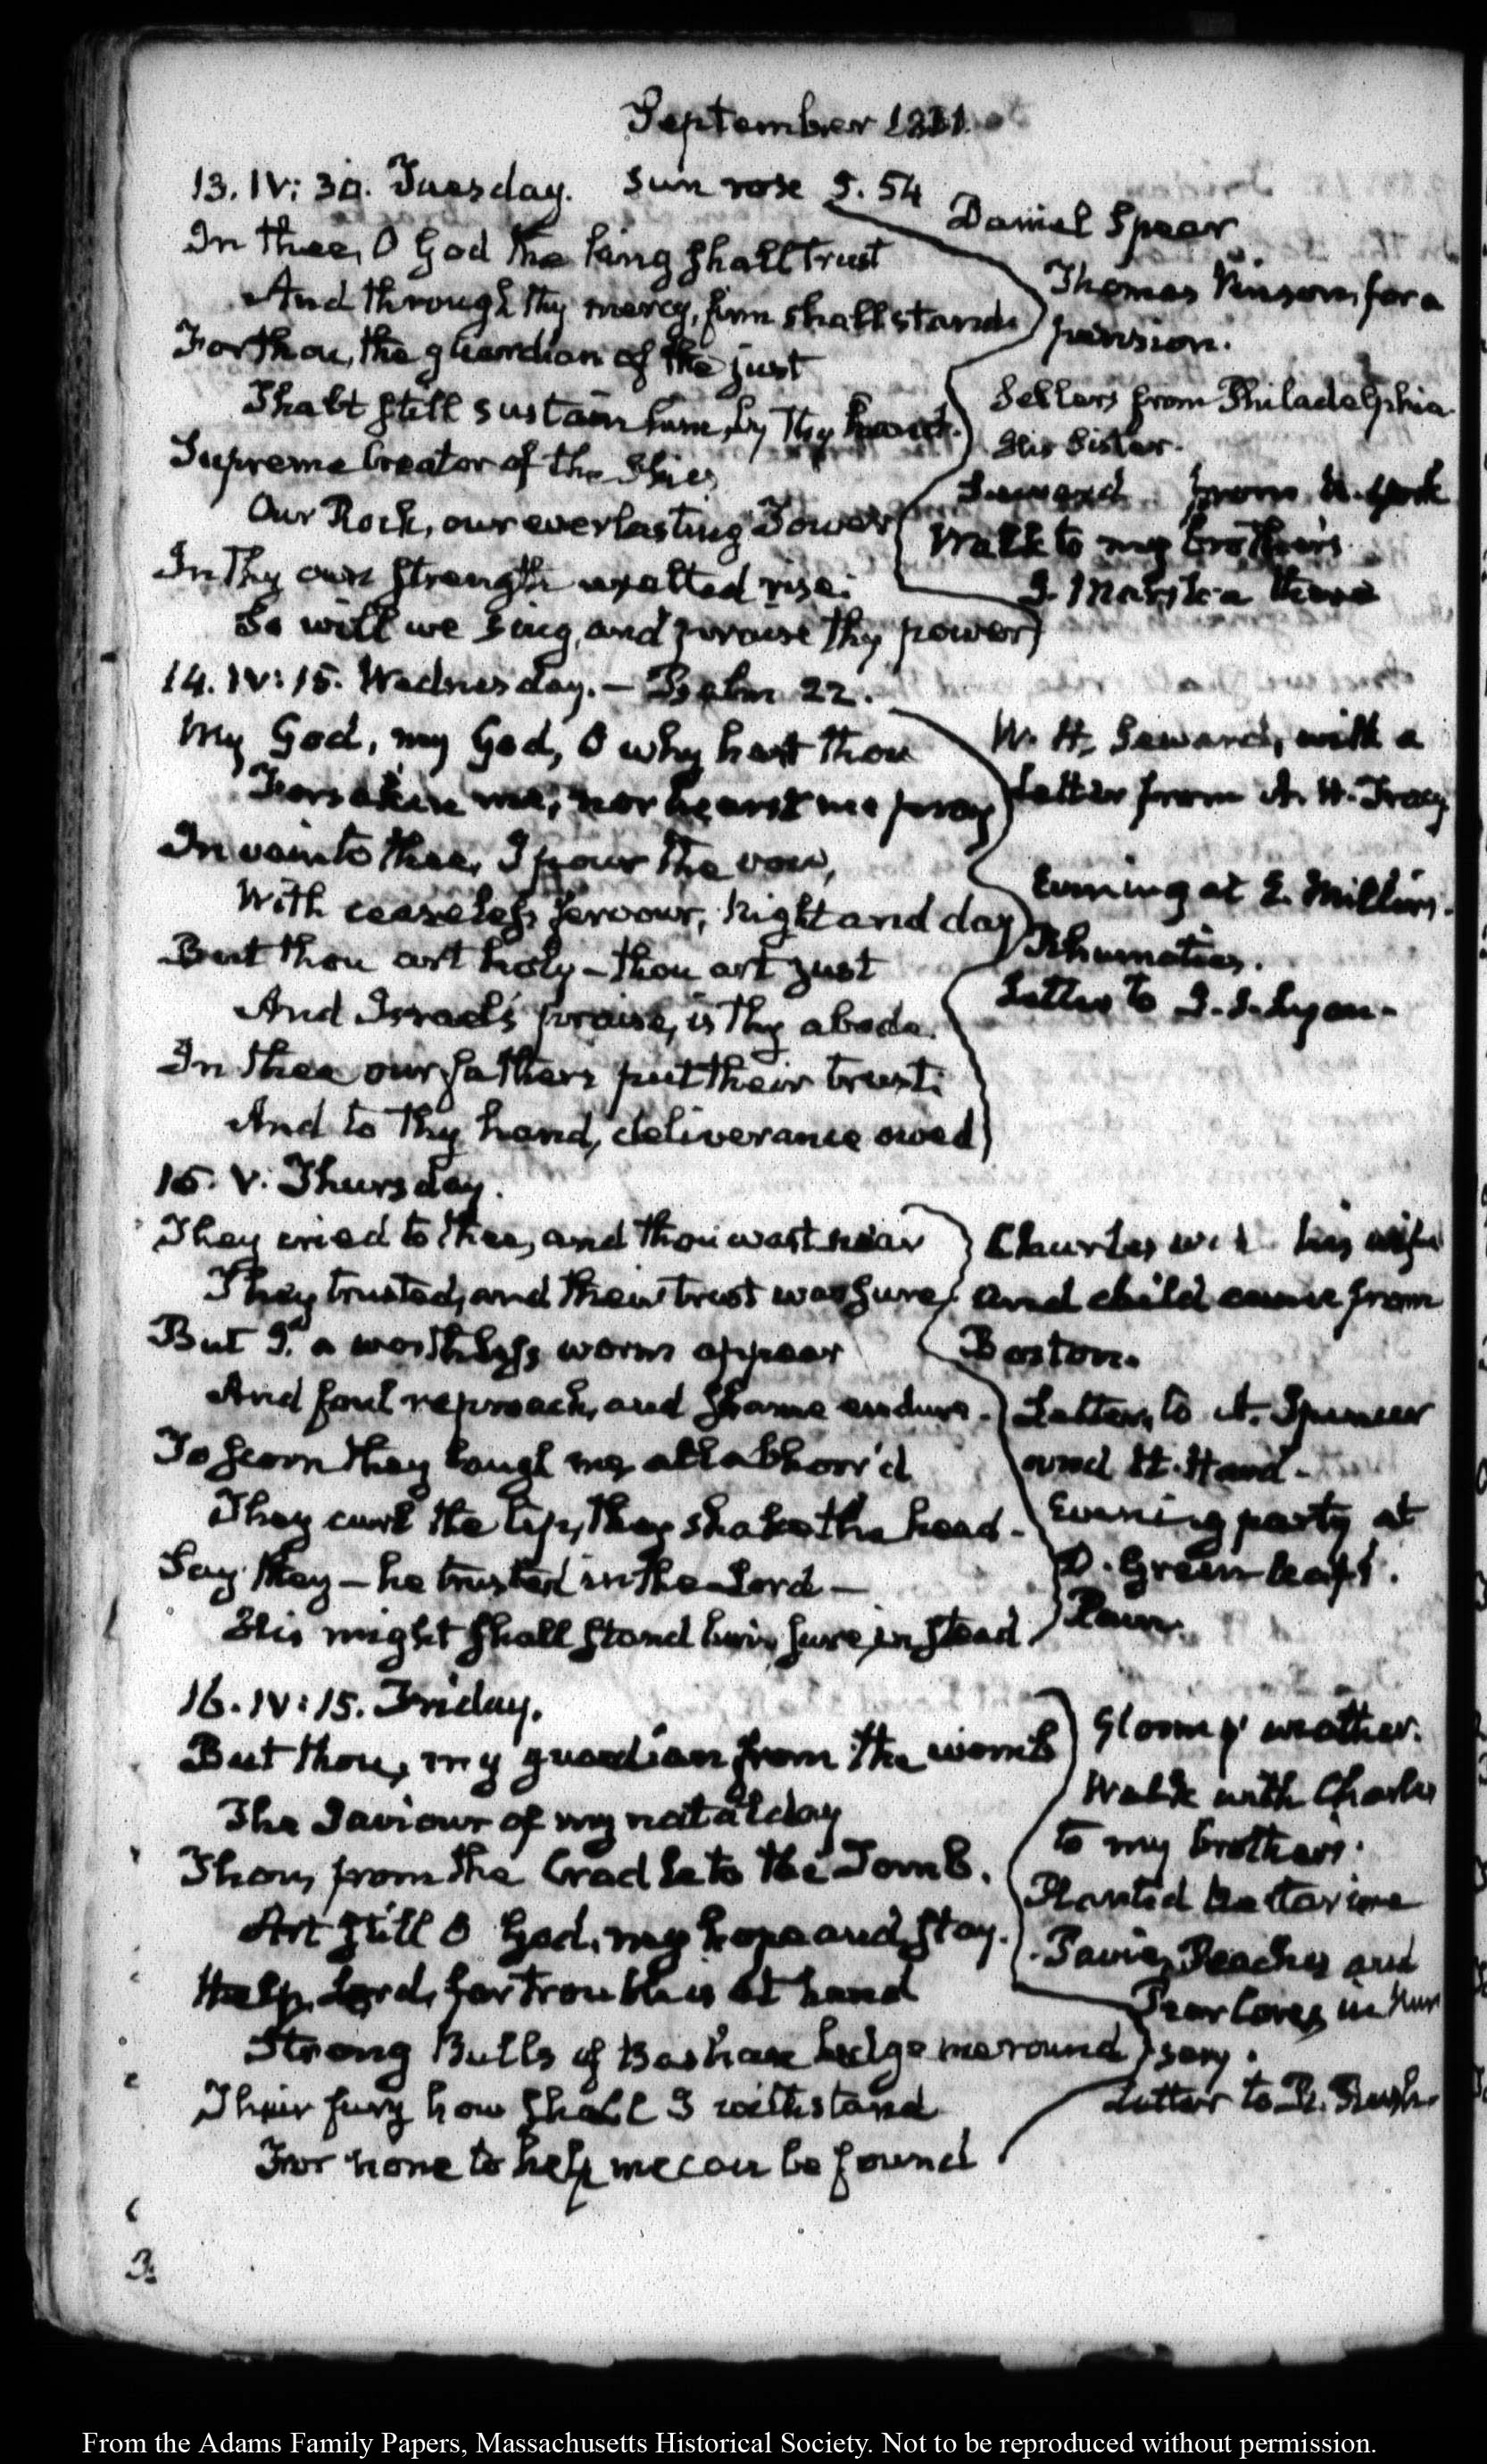 September 1831.
13. IV: 30. Tuesday. Sun rose 5. 54
In thee, O God the king shall trust
And through thy mercy, firm shall stand
For thou, the guardian of the just
Shalt still sustain him, by Thy hand.
Supreme Creator of the Skies
Our Rock, our everlasting Tower
In Thy own strength exalted rise:
So will we sing, and praise thy power
Daniel Spear
Thomas for a
pension.
Letters from Philadelphia
His Sister.
Seward from N. York
Walk to my brother's
there
14. IV: 15. Wednesday. — Psalm 22.
My God, my God, O why hast thou
Forsaken me; nor hearst me pray
In vain to thee, I pour the vow,
With ceaseless fervour, night and day
But thou art holy — thou art just
And Israel's praise, is Thy abode.
In thee our fathers put their trust:
And to Thy hand, deliverance owed
W. H. Seward, with a
letter from A. H. Tracy
Evening at E. Miller's.
Rheumatism.
Letter to Lyon.
15. V. Thursday.
They cried to thee, and thou wast near
They trusted, and their trust was sure,
But I, a worthless worm appear
And foul reproach, and shame endure.
To scorn they laugh me, all abhorr'd
They curl the lip, they shake the head.
Say they — he trusted in the Lord —
His might shall stand him, sure, in stead
Charles with his wife
and child came from
Boston.
Letters to A. Spencer
and H. Hand.
Evening party at
D. Greenleaf's.
Rain.
16. IV: 15. Friday.
But thou, my guardian from the womb
The Saviour of my natal day
Thou, from the Cradle to the Tomb.
Art still O God, my hope and stay.
Help, Lord, for trouble is at hand
Strong Bulls of Bashan hedge me round
Their fury how shall I withstand
For none to help me can be found
Gloomy weather.
Walk with Charles
to my brother's.
Planted Nectarine
Peaches and
in Nur
sery.
Letter to R. Rush.